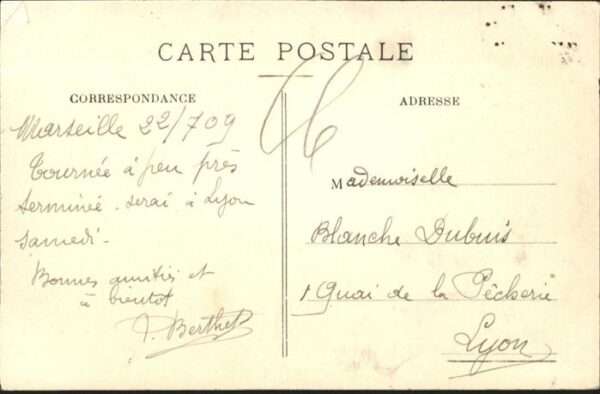 CARTE POSTALE
CORRESPONDANCE
ADRESSE
Marseille 22/7 09
Tournée à peu près
terminée. serai à Lyon
samedi.
Bonnes amitiés et
à bientot
Berthet
Mademoiselle
Blanche Dubuis
1 Quai de la Pêcherie
Lyon